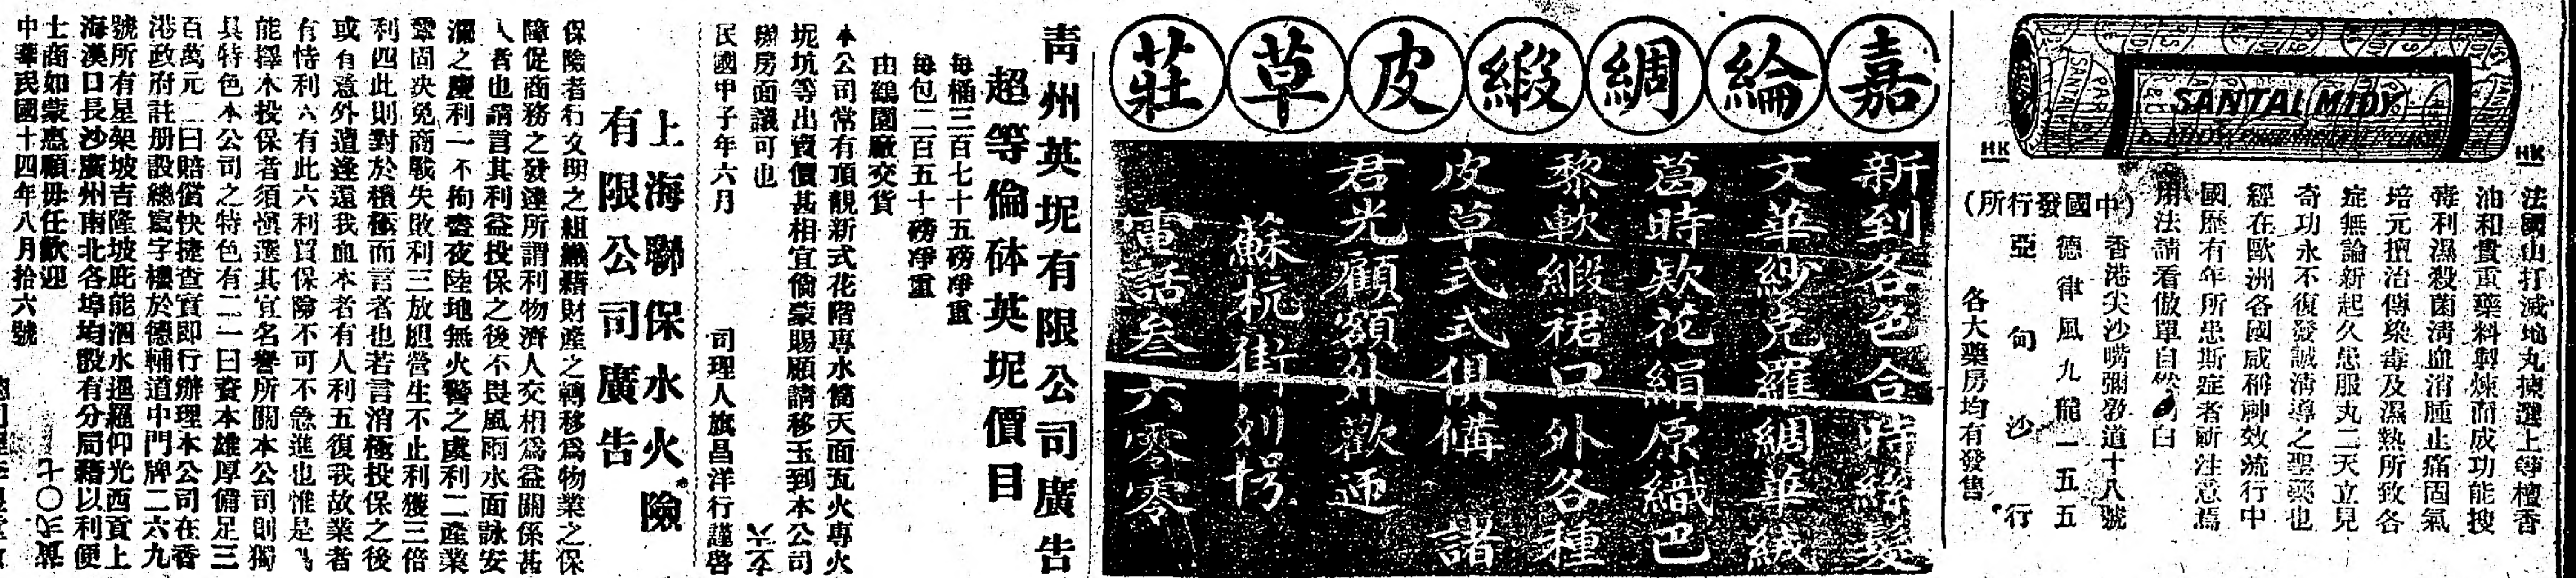 SANTAL MIDY
HK
HK
法國山打滅地丸揀選上等檀香
油和貴重藥料製煉而成功能搜
毒利濕殺菌淸血消腫止痛固氣
培元擅治傳染毒及濕熱所致各
症無論新起久患服丸二天立見
奇功永不復發誠淸導之聖藥也
經在歐洲各國咸稱神效流行中
國歷有年所患斯症者祈注意焉
用法請看倣單自然明白
香港尖沙嘴彌敦道十八號
德律風九龍一五五
(中國發行所)
亞句沙行
各大藥房均有發售
嘉綸綢緞皮草莊
新到各色合時絲髮
文華紗克羅綢華絨
葛時欵花絹原織巴
黎軟緞裙口外各種
皮草式式俱備 諸
君光顧額外歡迎
蘇杭街列拐
電話叁六零零
靑州英坭有限公司廣告
超等倫砵英坭價目
每桶三百七十五磅凈重
每包二百五十磅凈重
由鶴園廠交貨
本公司常有頂靚新式花階專水筒天面瓦火專火
坭坑等出賣價甚相宜倘蒙賜顧請移玉到本公司
辦房面議可也
民國甲子年六月 司理人旗昌洋行謹啓
上海聯保水火險
有限公司廣告
保險者行文明之組織藉財產之轉移爲物業之保
障促商務之發達所謂利物濟人交相爲益關係甚
人者也請言其利益投保之後不畏風雨水面詠安
瀾之慶利一不拘晝夜陸地無火警之虞利二產業
鞏固决免商戰失敗利三放胆營生不止利獲三倍
利四此則對於積極而言者也若言消極投保之後
或有意外遭逢還我血本者有人利五復我故業者
有恃利六有此六利買保險不可不急進也惟是爲
能擇木投保者須愼選其宜名譽所關本公司則獨
具特色本公司之特色有二一曰資本雄厚備足三
百萬元二曰賠償快捷查實即行辦理本公司在香
港政府註册設總寫字樓於德輔道中門牌二六九
號所有星架坡吉隆坡庇能泗水暹羅仰光西貢上
海漢口長沙廣州南北各埠均設有分局藉以利便
士商如蒙惠顧毋任歡迎
中華民國十四年八月拾六號